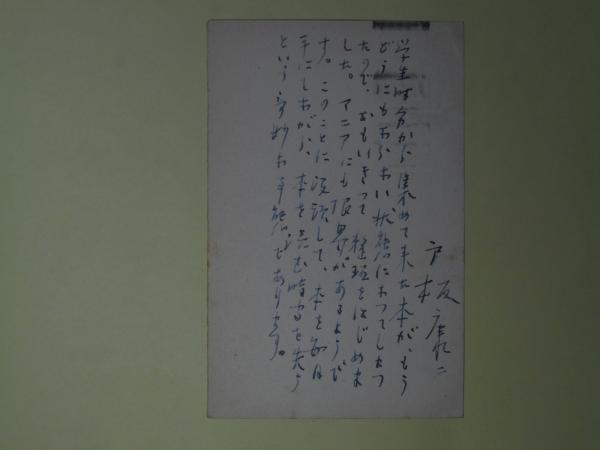 戸板康二
学生時分から集めて来た本が、もう
どうにもならない状態になつてしまつ
たので、おもいきつて整理をはじめま
した。マニアにも限界があるようで
す。このことに没頭して、本を毎日
手にしながら、本を読む時間を失う
という奇妙な事態であります。